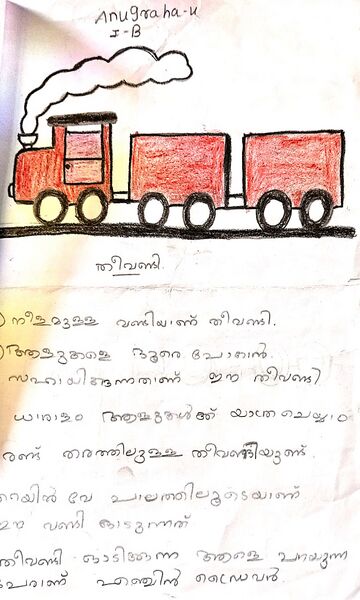 Anugraha-u
I-B
തീവണ്ടി
നീളമുള്ള വണ്ടിയാണ് തീവണ്ടി.
ആളുകളെ ദൂരെ പോകാൻ
സഹായിക്കുന്നതാണ് ഈ തീവണ്ടി
ധാരാളം ആളുകൾക്ക് യാത്രചെയ്യാം
രണ്ട് തരത്തിലുള്ള തീവണ്ടിയുണ്ട്.
റെയിൽ വേ പാലത്തിലൂടെയാണ്
ഈ വണ്ടി ഓടുന്നത്
തീവണ്ടി ഓടിക്കുന്ന ആളെ പറയുന്ന
പേരാണ് എഞ്ചിൻ ഡ്രൈവർ.